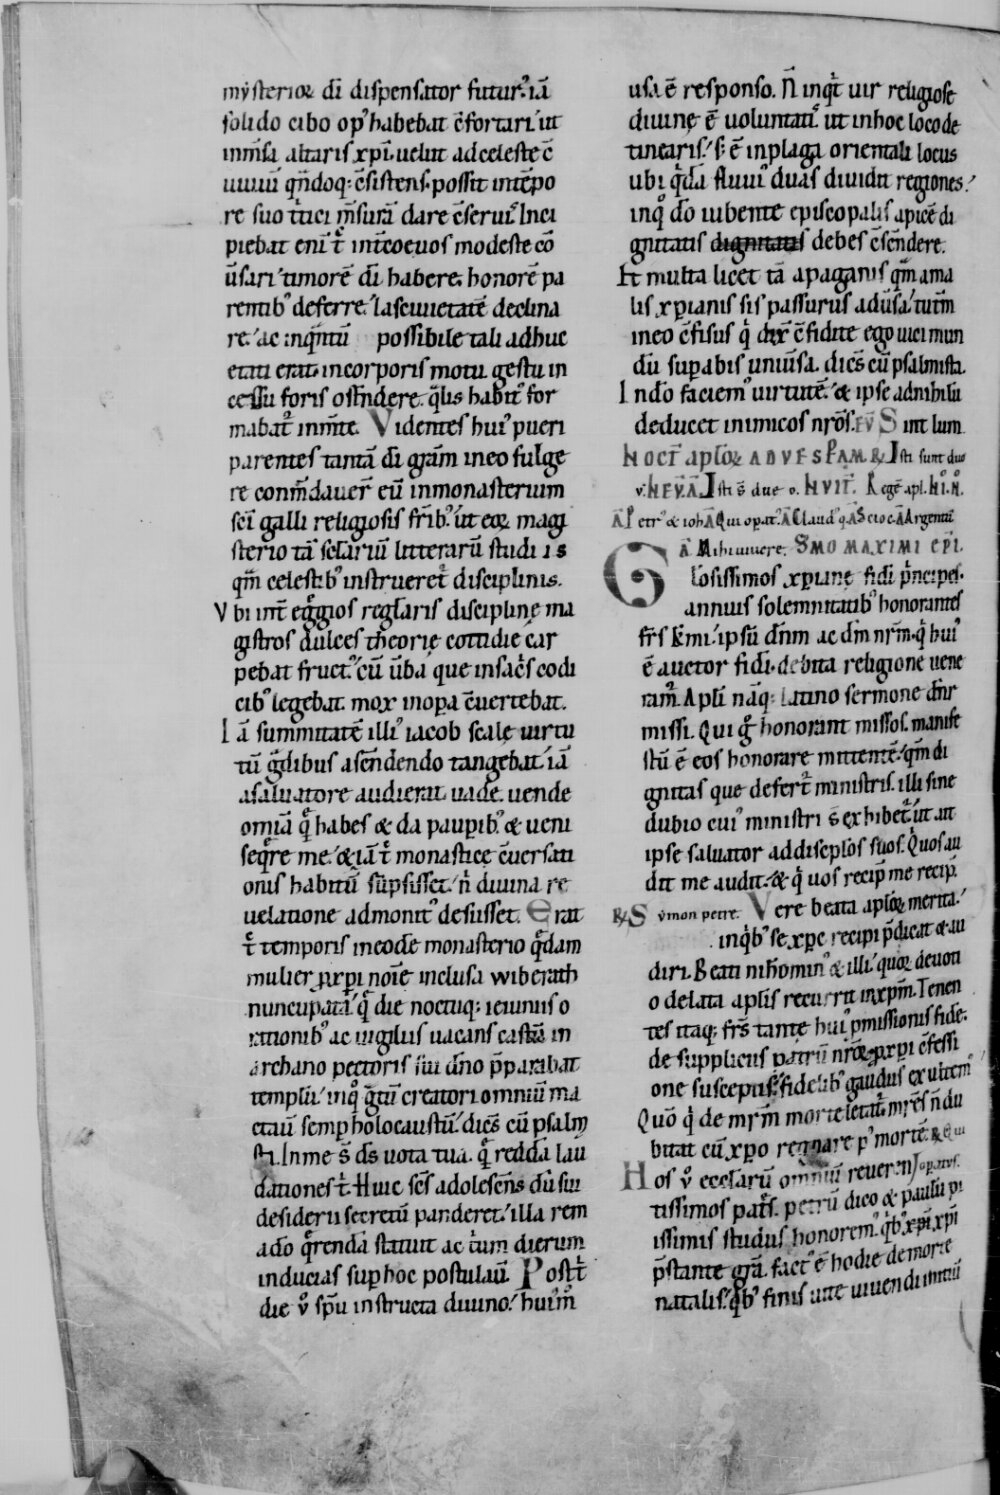 mẏsterioꝝ dī dispensator futur᷒. iā
solido cibo op᷒ habebat c̄fortari ut
inm̄sa altaris xp̄i. uelut ad celeste c̄
uiuiū qn̄doq; c̄sistens. possit intēpo
re suo t͛tici m̄surā dare c̄seruis᷒. Inci
piebat eni᷒ t͛ int̄ coeuos modeste cō
ūsari. timorē dī habere. honorē pa
rentib᷒ deferre. lasciuietatē declina
re. ac inqn̄tū possibile tali adhuc
etati erat. in corporis motu. gestu in
cessu foris ostn̄dere. qͣlis habit᷒ for
mabat͛ inm̄te. Videntes hui᷒ pueri
parentes tantā dī gr̄am in eo fulge
re con̄mdauer̄ eū in monasterium
sc̄i galli religiosis fr̄ib᷒. ut eoꝝ magi
sterio tā sc̄lariū litterarū studiis
qm̄ celestib᷒ instrueret͛ disciplinis.
Vbi int̄ egͤgios regl̄aris discipline̜ ma
gistros dulces theorie̜ cottidie car
pebat fruct᷒. cū ūba que in sac͛s codi
cib᷒ legebat. mox in oꝑa c̄uertebat.
Iā summitatē illi᷒ iacob scale̜ uirtu
tū gͣdibus asc̄ndendo tangebat. iā
a saluatore audierat. uade. uende
omīa qͤ habes & da pauꝑib᷒ & ueni
seqͤre me. & iā t͛ monastice̜ c̄uersati
onis habitū sūpsisset. n̄ diuina re
uelatione admonit᷒ desisset. Erat
t͛ temporis in eodē monasterio qͤdam
mulier ꝓ xp̄i noīe inclusa wiberath
nuncupata. qͤ die noctuq; ieiuniis o
rationib᷒ ac uigiliis uacans castū in
archano pectoris sui dn̄o p̄parabat
templū. inqͦ gͣtū creatori omniū ma
ctaū semꝑ holocaustū. dicēs cū psalmi
sta. In me s̄ ds̄ uota tua. qͤ reddā lau
dationes t͛. Huic sc̄s adolescēns dū sui
desiderii secretū panderet. illa rem
a dō qͤrendā statuit ac t͛um dierum
inducias suꝑ hoc postulauit. Post t͛
die u᷒ sp̄u instructa diuino. hui᷒m̄
usa ē responso. N̄ inqͭ uir religiose
diuine̜ ē uoluntatis᷒ ut in hoc loco de
tinearis. s; ē in plaga orientali locus
ubi qͥdā fluui᷒ duas diuidit regiones.
inqͦ dō iubente episcopalis apicē di
gnitatis dignitatis debes c̄scn̄dere.
Et multa licet tā a paganis qm̄ a ma
lis xp̄ianis sis passurus adūsa. tam̄
in eo c̄fisus qͥ dix̄. c̄fidite ego uici mun
dū suꝑabis uniūsa. dicēs cū psalmista.
In dō faciem᷒ uirtutē. & ipse ad nihilū
deducet inimicos nr̄os. EV̄ Sint lum
IN OCT̄ apl̄oꝝ AD VESPAM. ℟ Isti sunt duo
v. IN EV̄. Ā Isti s̄ due o. IN VIT̄. Regē apl. IN I. N̄.
Ā Petr᷒ & ioh̄ Ā Qui operat᷒. Ā Claud᷒ q. Ā Scio c. Ā Argentū
Ā. Mihi uiuere. SMO MAXIMI EP̄I.
Glosissimos xp̄iane̜ fidi p͛ncipes.
annuis solemnitatib᷒ honorantes
fr̄s kmi. ipsū dn̄m ac dm̄ nrm̄. qͥ hui᷒
ē auctor fidi. debita religione uene
ram᷒. Apl̄i nāq; latino sermone dn̄r
missi. Qui gͦ honorant missos. manife
stū ē eos honorare mittentē. qm̄ di
gnitas que defert͛ ministris. illi sine
dubio cui᷒ ministri s̄ exhibet͛. ut ait
ipse saluator ad discipl̄os suos. Quos au
dit me audit. & qͥ uos recip̄ me recip̄.
℟ Sẏmon petre. Vere beata apl̄oꝝ merita.
inqͥb᷒ se xp̄c recipi p̄dicat & au
diri. Beati nih̄omin᷒ & illi. quoꝝ deuoti
o delata apl̄is recurrit in xp̄m. Tenen
tes itaq; fr̄s tante̜ hui᷒ ꝓmissionis fidē.
de suppliciis patrū nr̄oꝝ. ꝓ xp̄i c̄fessi
one susceptis. fidelib᷒ gaudiis exultem᷒
Quō qͥ de mr̄m morte letat͛. mr̄es n̄ du
bitat cū xp̄o regnare p᷒ mortē. ℟ Qui
Hos u᷒ eccl̄arū omniū reueren operatus.
tissimos pat͛s. petrū dico & paulū pi
issimis studiis honorem᷒. qͥb᷒ xp̄i xp̄i
p̄stante gr̄a. fact᷒ ē hodie de morte
natalis. qͥb᷒ finis uite̜ uiuendi initiū